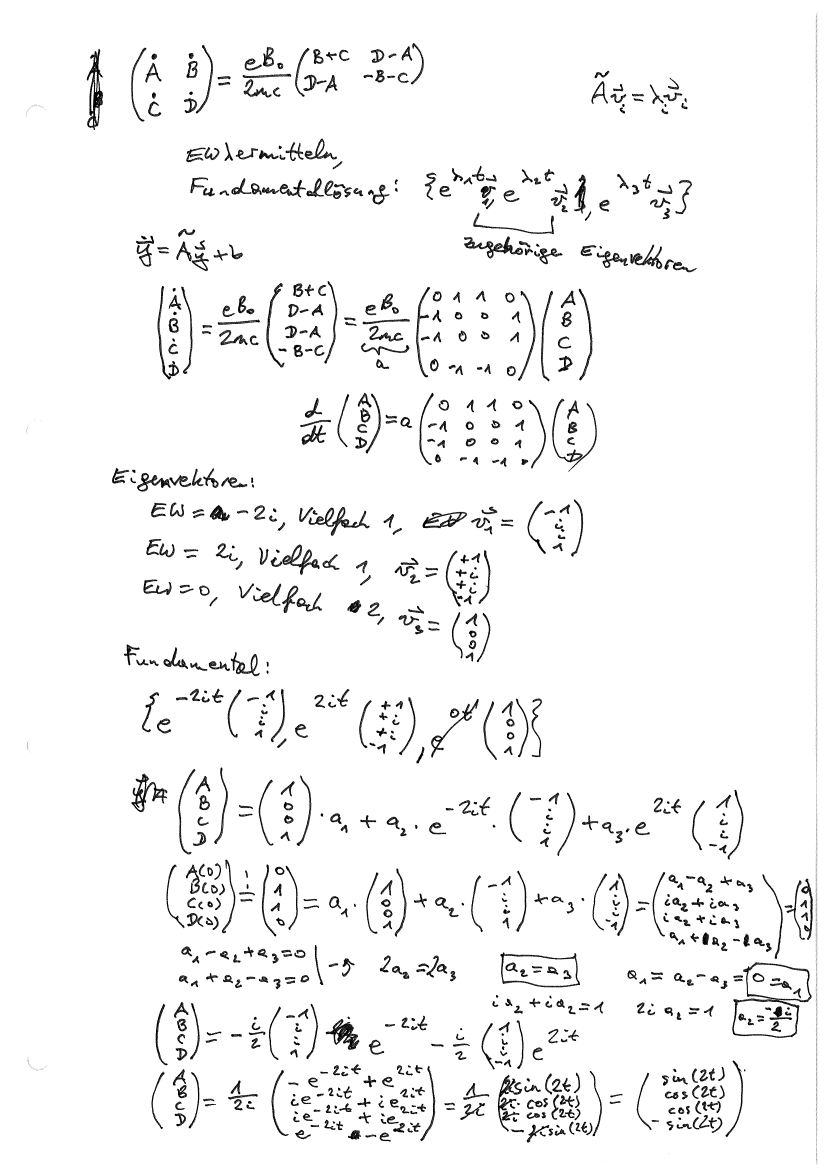 (Ȧ Ḃ; Ċ Ḋ) = eB₀/2mc (B+C D-A; D-A -B-C)
Ã v⃗ᵢ = λᵢ v⃗ᵢ
EW λ ermitteln,
Fundamentallösung: {e^λ₁t v⃗₁, e^λ₂t v⃗₂, e^λ₃t v⃗₃}
zugehörige Eigenvektoren
y⃗̇ = Ã y⃗ + b
(Ȧ; Ḃ; Ċ; Ḋ) = eB₀/2mc (B+C; D-A; D-A; -B-C) = eB₀/2mc (0 1 1 0; -1 0 0 1; -1 0 0 1; 0 -1 -1 0) (A; B; C; D)
a
d/dt (A; B; C; D) = a (0 1 1 0; -1 0 0 1; -1 0 0 1; 0 -1 -1 0) (A; B; C; D)
Eigenvektoren:
EW = -2i, Vielfach 1, v⃗₁ = (-1; i; i; 1)
EW = 2i, Vielfach 1, v⃗₂ = (+1; +i; +i; -1)
EW = 0, Vielfach 2, v⃗₃ = (1; 0; 0; 1)
Fundamental:
{e^-2it (-1; i; i; 1), e^2it (+1; +i; +i; -1), e^0t (1; 0; 0; 1)}
(A; B; C; D) = (1; 0; 0; 1) · a₁ + a₂ · e^-2it · (-1; i; i; 1) + a₃ · e^2it (1; i; i; -1)
(A(0); B(0); C(0); D(0)) =! (0; 1; 1; 0) = a₁ · (1; 0; 0; 1) + a₂ · (-1; i; i; 1) + a₃ · (1; i; i; -1) = (a₁-a₂+a₃; ia₂+ia₃; ia₂+ia₃; a₁+a₂-a₃) = (0; 1; 1; 0)
a₁-a₂+a₃=0
a₁+a₂-a₃=0 | 2a₂=2a₃ a₂=a₃ a₁ = a₂-a₃ = 0=a₁
ia₂+ia₂=1 2ia₂=1 a₂=-i/2
(A; B; C; D) = -i/2 (-1; i; i; 1) e^-2it - i/2 (1; i; i; -1) e^2it
(A; B; C; D) = 1/2i (-e^-2it+e^2it; ie^-2it+ie^2it; ie^-2it+ie^2it; e^-2it-e^2it) = 1/2i (2i sin(2t); 2i cos(2t); 2i cos(2t); -2i sin(2t)) = (sin(2t); cos(2t); cos(2t); -sin(2t))